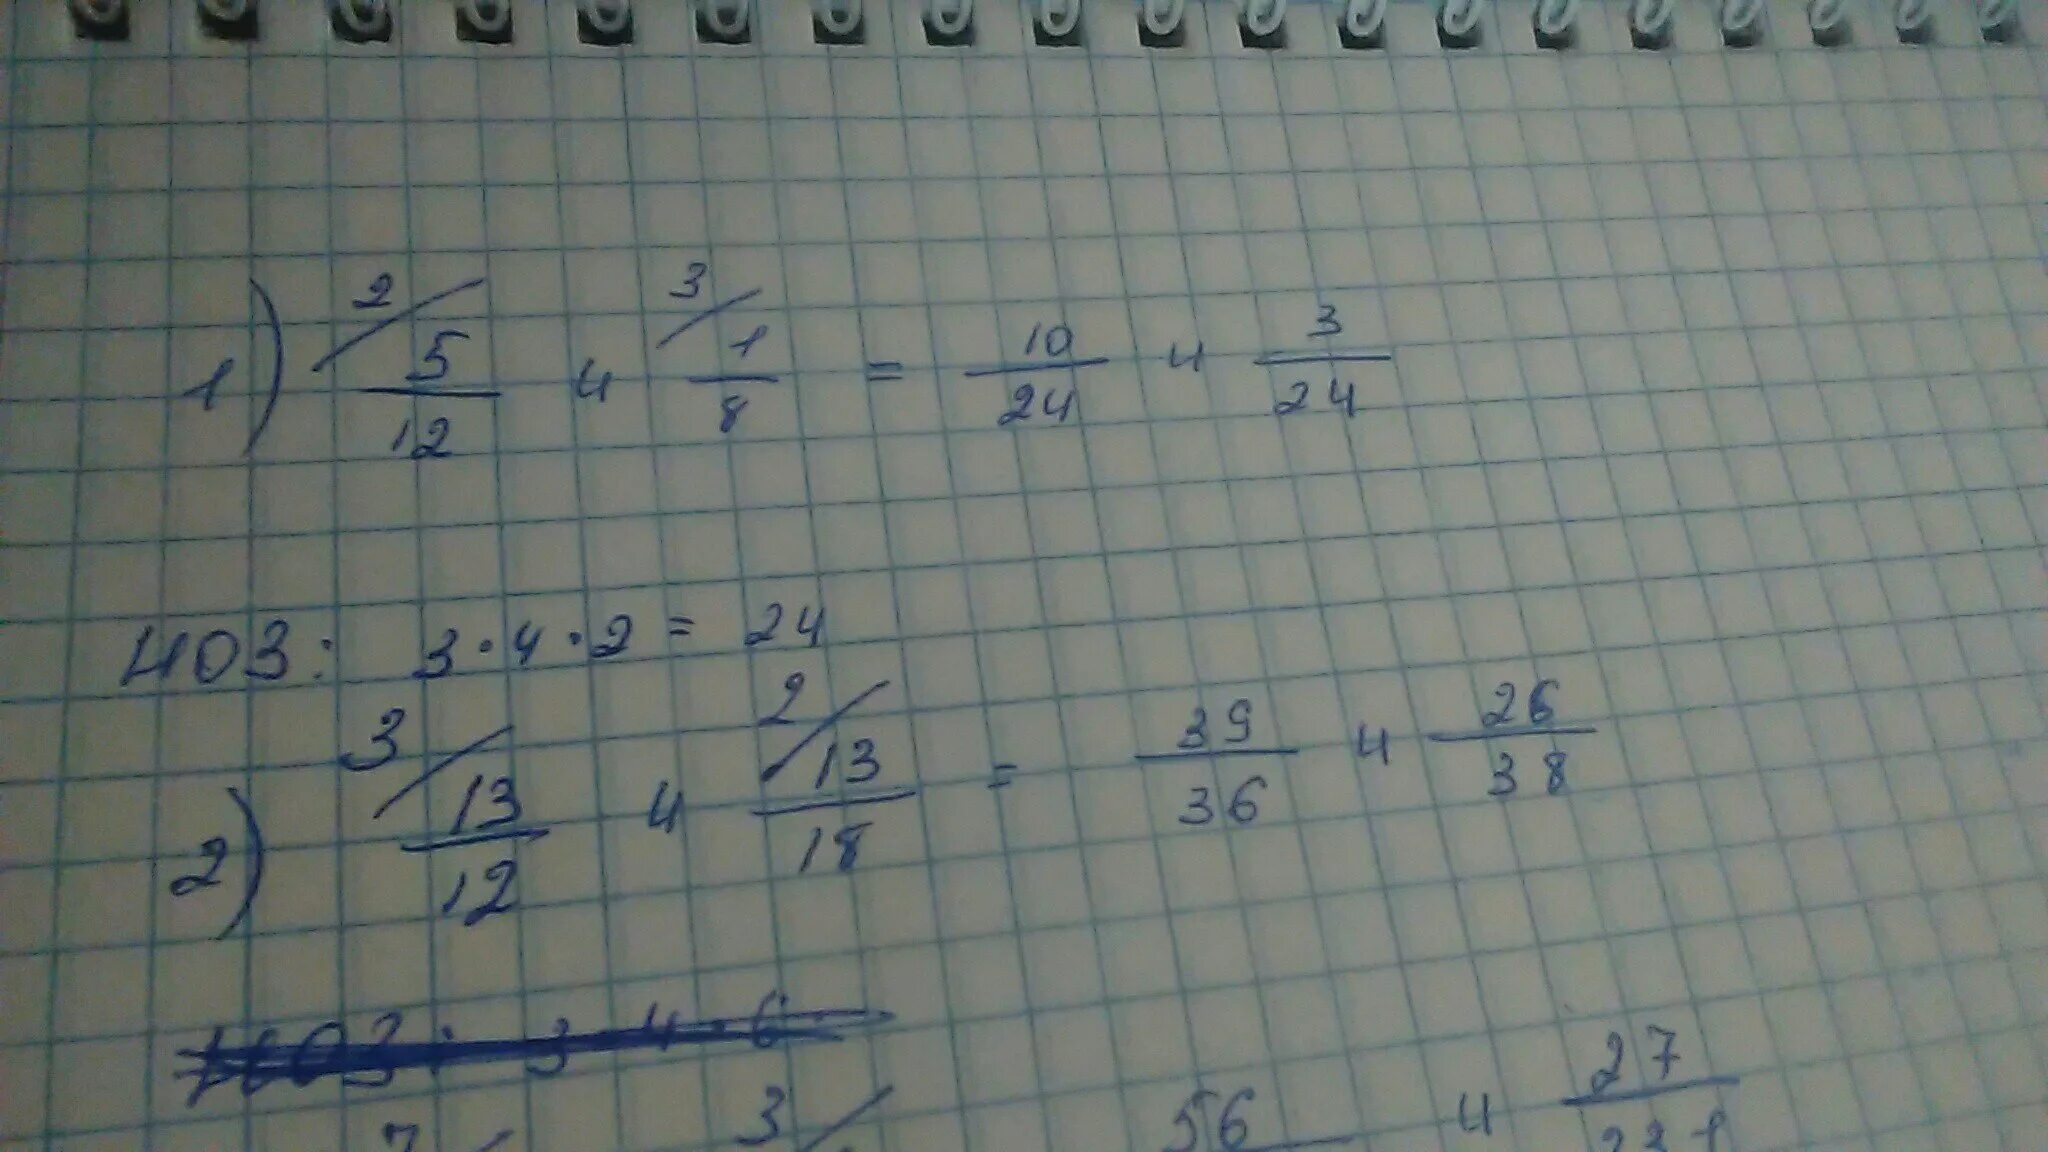 1) 2/ 5/12 и 3/ 1/8 = 10/24 и 3/24
НОЗ: 3·4·2 = 24
2) 3/ 13/12 и 2/ 13/18 = 39/36 и 26/38
НОЗ: 3·4·6
7/ 3/ 56 и 27